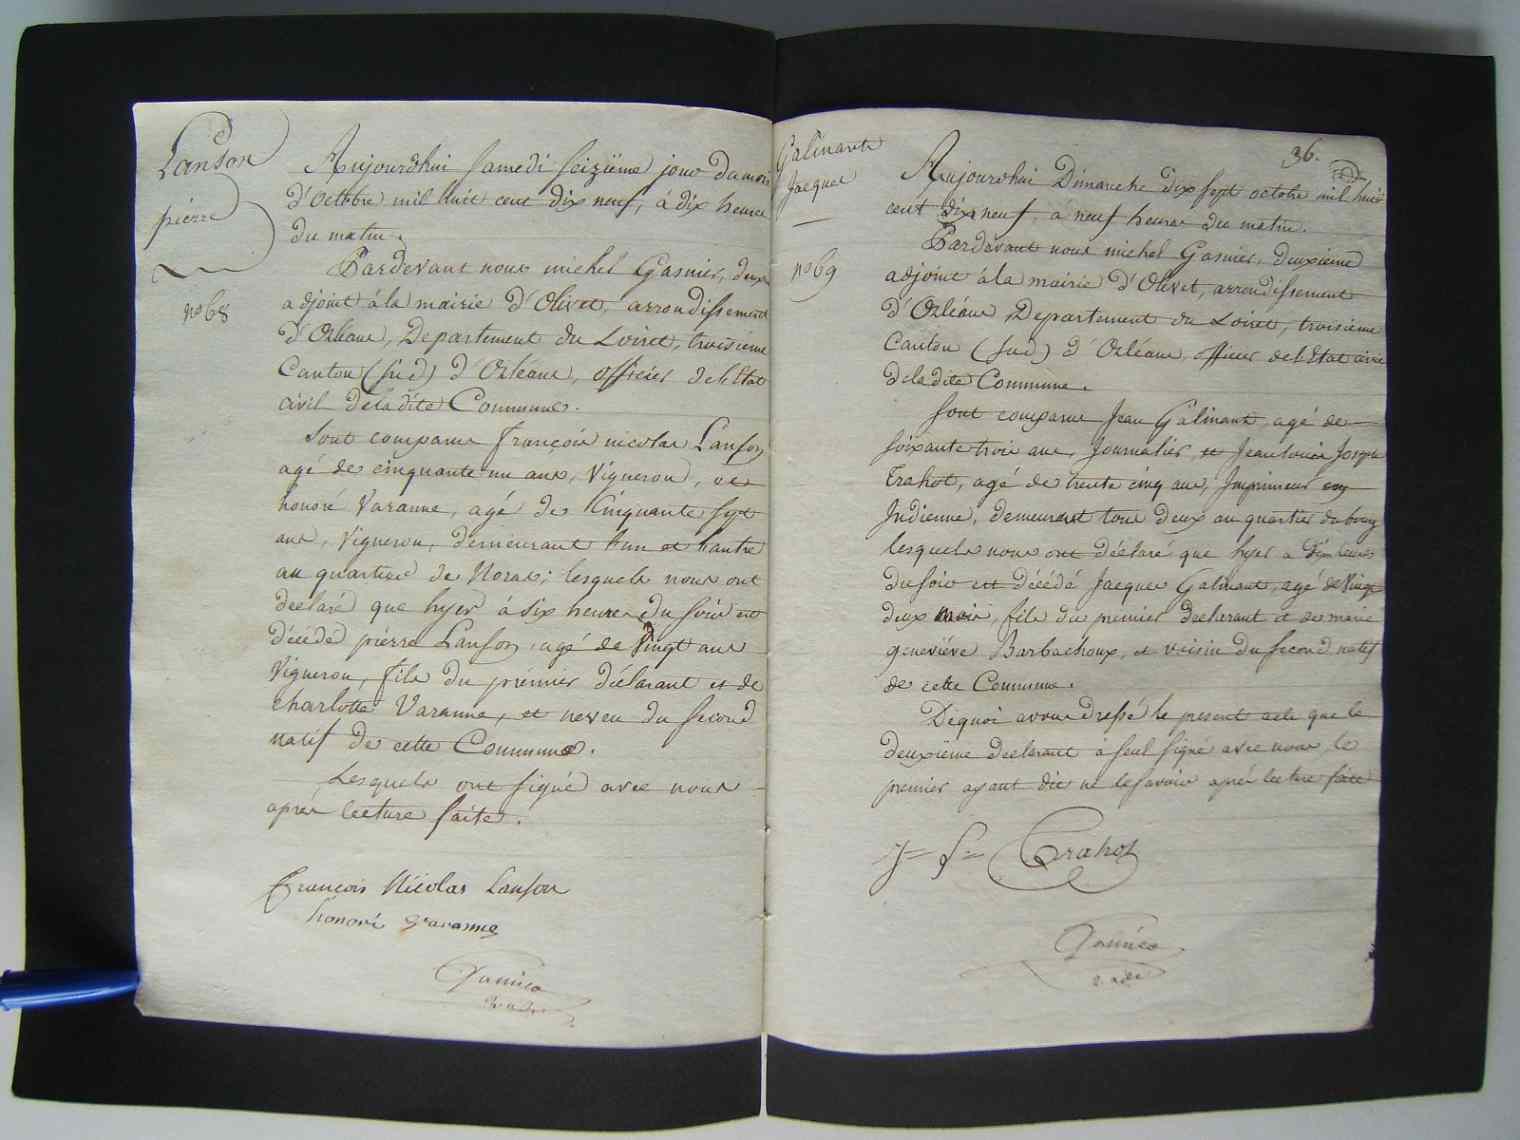 Lanson
pierre
n° 68
Aujourd'hui Samedi Seizième jour du mois
d'Octobre mil huit cent dix neuf, à dix heures
du matin.
Pardevant nous michel Gasnier, deux
adjoint à la mairie d'Olivet, arrondissement
d'Orléans, Departement du Loiret, troisieme
Canton (sud) d'Orléans, officier de l'Etat
civil de la dite Commune.
Sont comparus françois nicolas Lanson
agé de cinquante un ans, Vigneron, et
honoré Varanne, agé de Cinquante sept
ans, Vigneron, demeurant l'un et l'autre
au quartier de Noras; lesquels nous ont
declaré que hyer à six heures du soir est
décédé pierre Lanson, agé de Vingt ans
Vigneron, fils du prémier déclarant et de
Charlotte Varanne, et neveu du second
natif de cette Commune.
Lesquels ont signé avec nous
après lecture faite.
François Nicolas Lanson
honoré Varanne
Galinant
Jacques
n° 69
36.
Aujourd'hui Dimanche dix sept octobre mil huit
cent dix neuf, à neuf heures du matin.
Pardevant nous michel Gasnier, deuxieme
adjoint à la mairie d'Olivet, arrondissement
d'Orléans, Departement du Loiret, troisieme
Canton (sud) d'Orléans, officier de l'Etat civil
de la dite Commune.
Sont comparus Jean Galinant, agé de
soixante trois ans, Journalier, et Jean louis Joseph
Trahot, agé de trente cinq ans, Imprimeur en
Indienne, demeurant tous deux au quartier du bourg
lesquels nous ont déclaré que hyer à dix heures
du soir est décédé Jacques Galinant, agé de Vingt
deux mois, fils du premier declarant et de marie
geneviève Barbachoux, et voisin du second, natif
de cette Commune.
De quoi avons dressé le present acte que le
deuxième declarant a seul signé avec nous, le
premier ayant dit ne le savoir après lecture faite
J= f= Trahot
2. adt